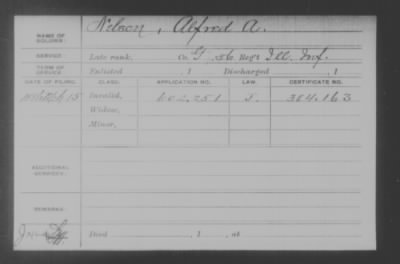 NAME OF SOLDIER: Nelson, Alfred A.
SERVICE: Late rank, Co. G, 56 Reg't Ill. Inf.
TERM OF SERVICE: Enlisted , 1 Discharged , 1
DATE OF FILING. CLASS. APPLICATION NO. LAW. CERTIFICATE NO.
15 Invalid, 602.251 J. 384.163
Widow,
Minor,
ADDITIONAL SERVICES:
REMARKS:
Died , 1 , at